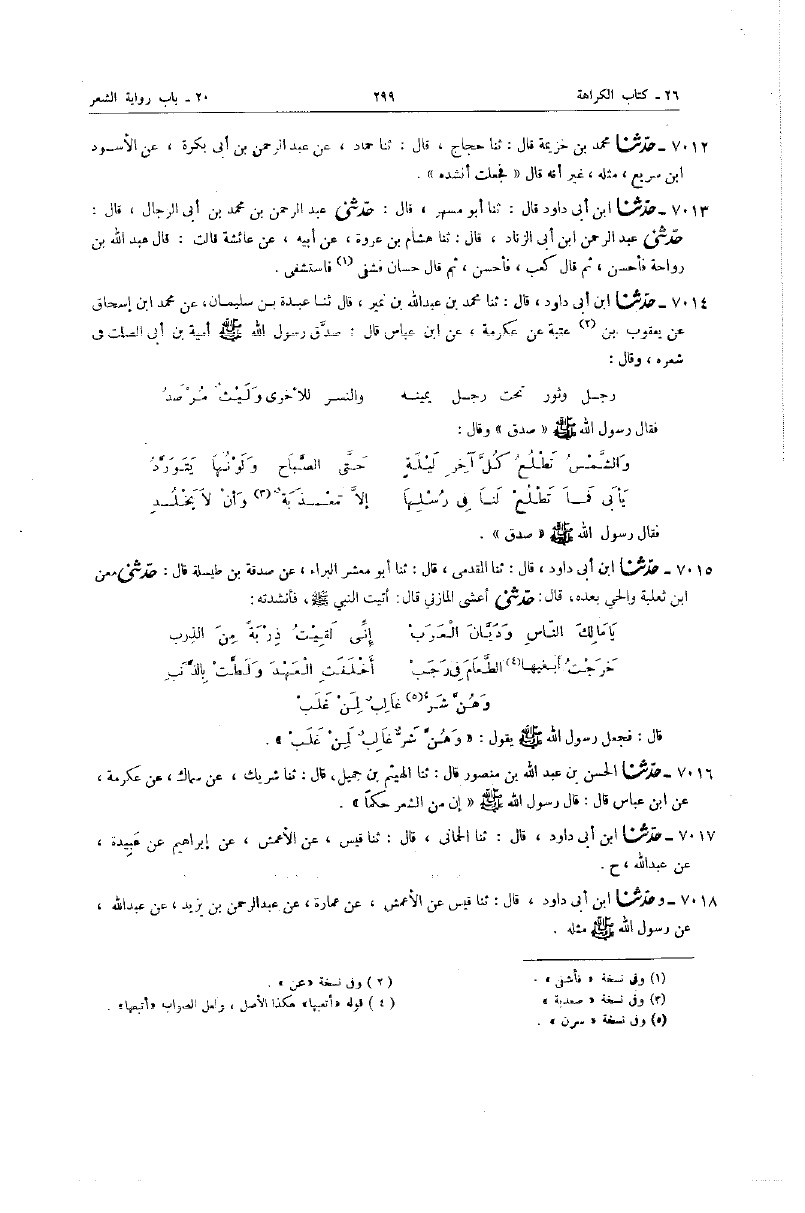 ٢٦ ـ كتاب الكراهة ٢٩٩ ٢٠ ـ باب رواية الشعر
٧٠١٢ ـ حدّثنا محمد بن خزيمة قال : ثنا حجاج ، قال : ثنا حماد ، عن عبد الرحمن بن أبى بكرة ، عن الأسود
ابن سريع ، مثله ، غير أنه قال « فجعلت أنشده » .
٧٠١٣ ـ حدّثنا ابن أبى داود قال : ثنا أبو مسهر ، قال : حدّثنى عبد الرحمن بن محمد بن أبى الرجال ، قال :
حدّثنى عبد الرحمن ابن أبى الزناد ، قال : ثنا هشام بن عروة ، عن أبيه ، عن عائشة قالت : قال عبد الله بن
رواحة فأحسن ، ثم قال كعب ، فأحسن ، ثم قال حسان فشفى (١) فاستشفى .
٧٠١٤ ـ حدّثنا ابن أبى داود ، قال : ثنا محمد بن عبدالله بن نمير ، قال ثنا عبدة بن سليمان، عن محمد ابن إسحاق
عن يعقوب بن (٢) عتبة عن عكرمة ، عن ابن عباس قال : صدّق رسول الله ﷺ أمية بن أبى الصلت فى
شعره ، وقال :
رجل وثور تحت رجل يمينه والنسر للأخرى وَلَيْثٌ مُرْصَدُ
فقال رسول الله ﷺ « صدق » وقال :
وَالشَّمْسُ تَطْلُعُ كُلَّ آخِرِ لَيْلَةٍ حَتَّى الصَّبَاحِ وَلَوْنُهَا يَتَوَرَّدُ
يَأْبَى فَمَا تَطْلُعْ لَنَا فِى رُسْلِهَا إِلاَّ مُعَذَّبَةً (٣) وَأَنْ لاَ يَخْلُد
فقال رسول الله ﷺ « صدق » .
٧٠١٥ ـ حدّثنا ابن أبى داود ، قال : ثنا المقدمى ، قال : ثنا أبو معشر البراء ، عن صدقة بن طيسلة قال : حدّثنى معن
ابن ثعلبة والحي بعده، قال: حدّثنى أعشى المازني قال: أتيت النبي ﷺ، فأنشدته:
يَامَالِكَ النَّاسِ وَدَيَّانَ الْعَرَبْ إِنِّى لَقِيتُ ذِرْبَةً مِنَ الذِرب
خَرَجْتُ أبغيها(٤) الطَّعَامَ فِى رَجَبْ أَخْلَفَتِ الْعَهْدَ وَلَطَّتْ بِالذَّنَبِ
وَهُنَّ شَرٌّ (٥) غَالِبٌ لِمَنْ غَلَبْ
قال : فجعل رسول الله ﷺ يقول : « وَهُنَّ شَرٌّ غَالِبٌ لِمَنْ غَلَبْ » .
٧٠١٦ ـ حدّثنا الحسن بن عبد الله بن منصور قال : ثنا الهيثم بن جميل، قال : ثنا شريك ، عن سماك ، عن عكرمة ،
عن ابن عباس قال : قال رسول الله ﷺ « إن من الشعر حكمًا » .
٧٠١٧ ـ حدّثنا ابن أبى داود ، قال : ثنا الحمانى ، قال : ثنا قيس ، عن الأعمش ، عن إبراهيم عن عَبِيدة ،
عن عبدالله ، ح .
٧٠١٨ ـ وحدّثنا ابن أبى داود ، قال : ثنا قيس عن الأعمش ، عن عمارة ، عن عبدالرحمن بن يزيد ، عن عبدالله ،
عن رسول الله ﷺ مثله .
(١) وفى نسخة « فأشفى » . (٢) وفى نسخة « عن » .
(٣) وفى نسخة « صعدية » (٤) قوله «أتعبها» هكذا الأصل ، ولعل الصواب «أتبعها» .
(٥) وفى نسخة « سرن » .